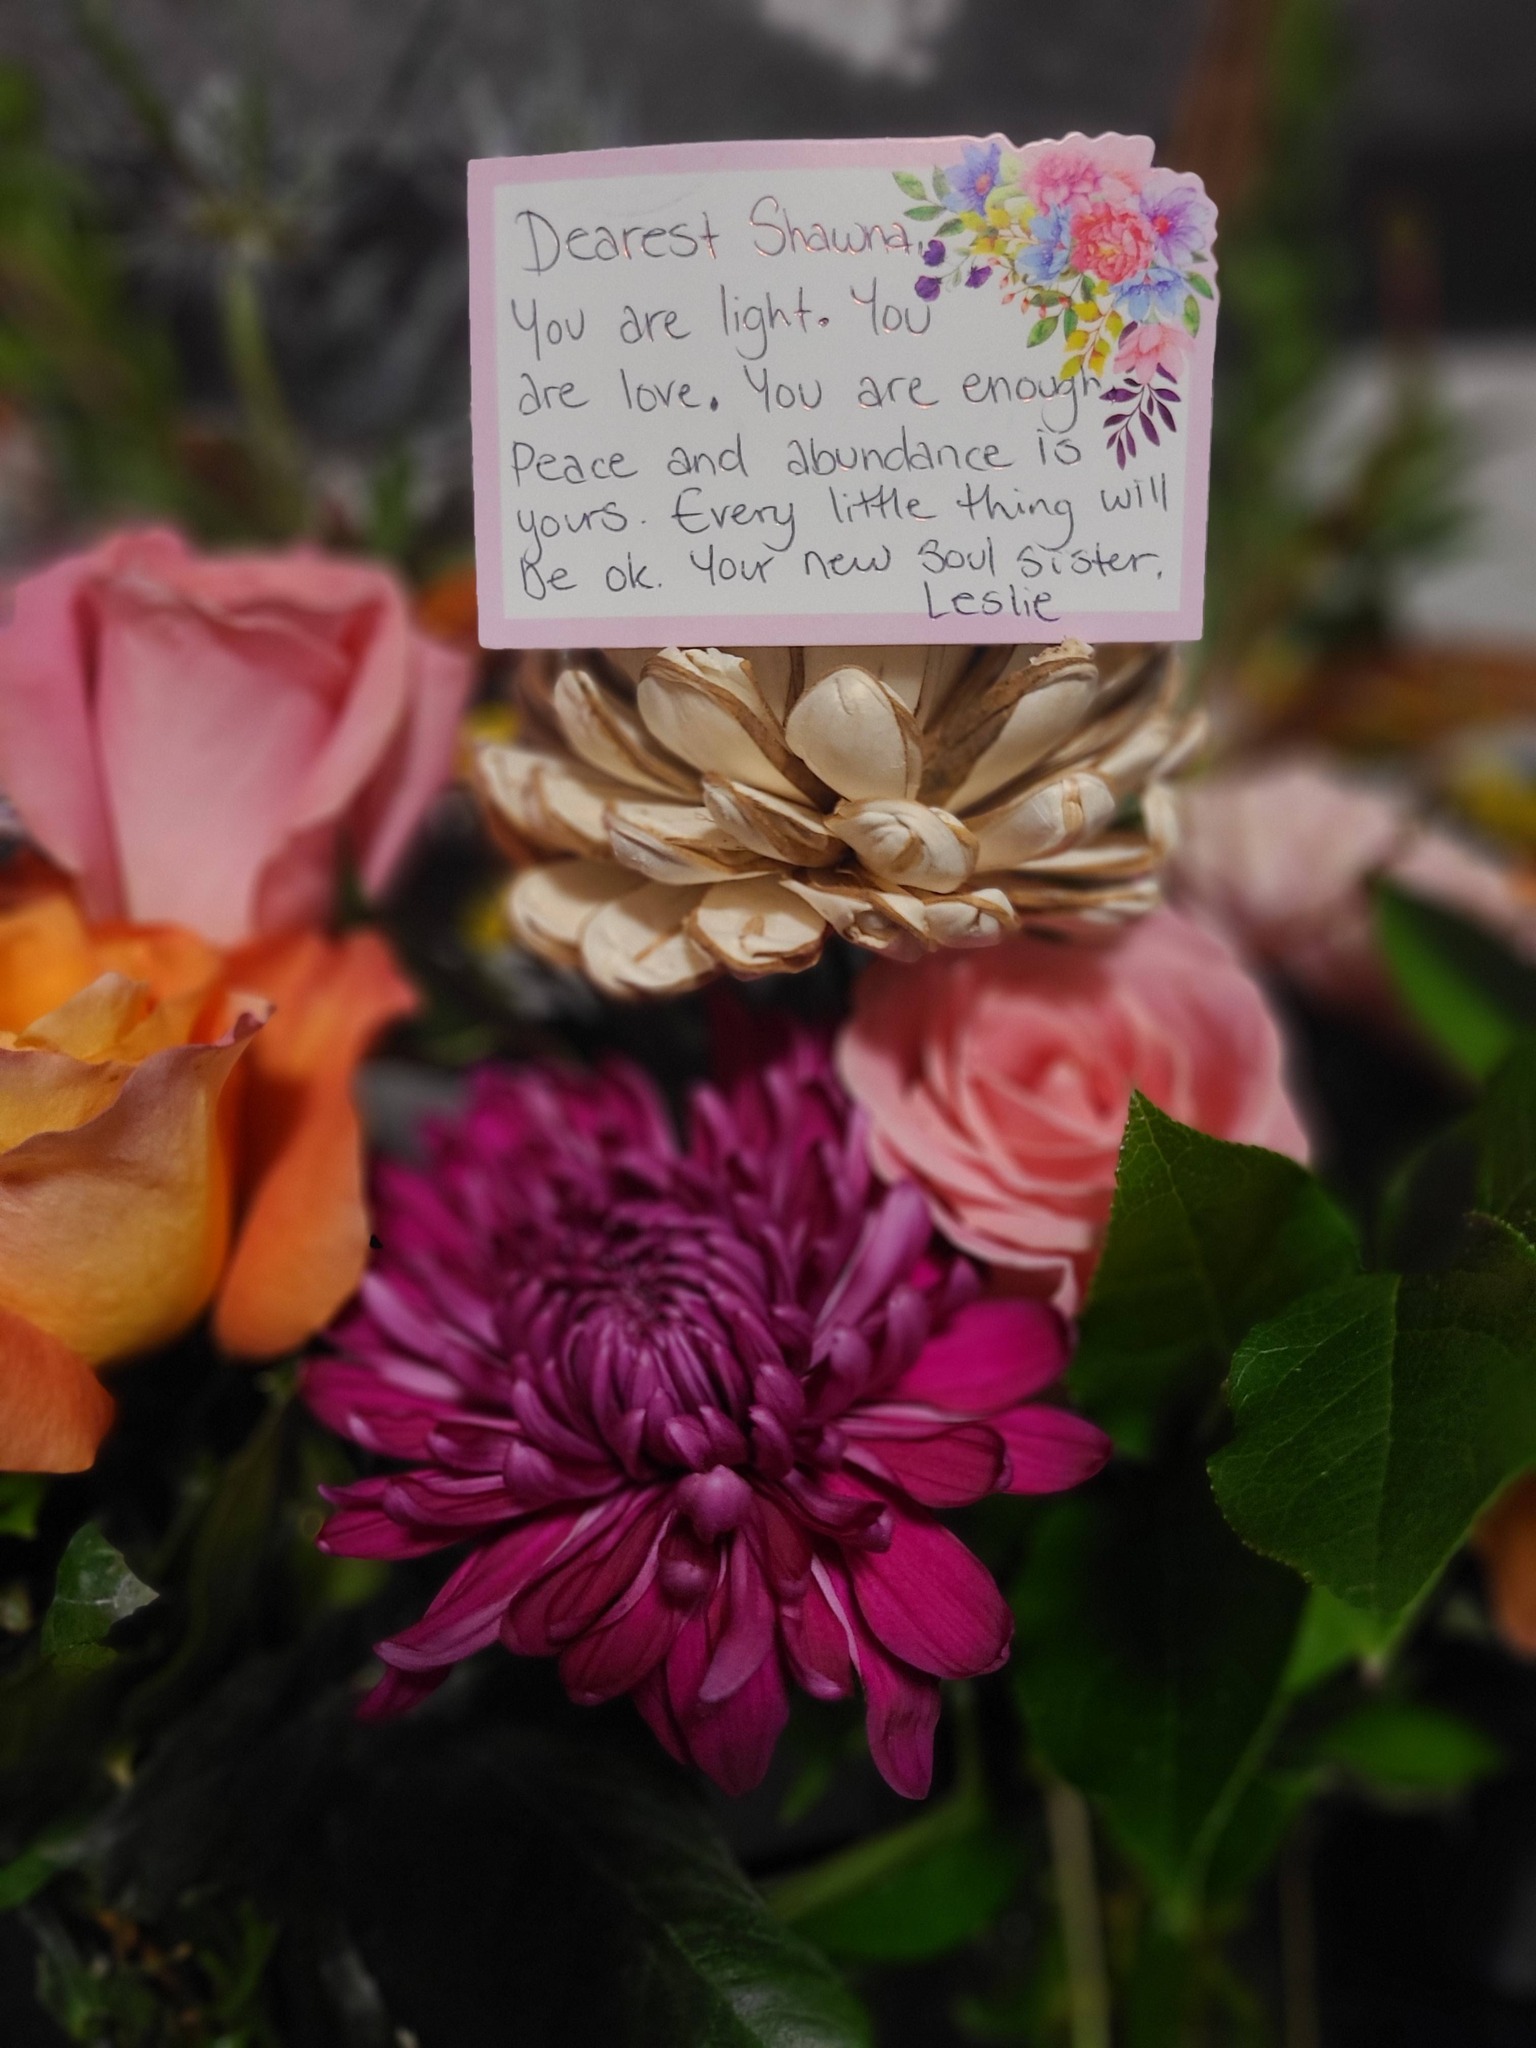 Dearest Shawna,
You are light. You
are love. You are enough.
Peace and abundance is
yours. Every little thing will
Be ok. Your new Soul sister,
Leslie